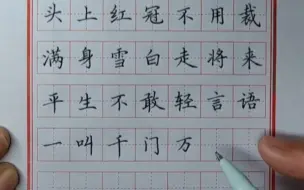 头上红冠不用裁
满身雪白走将来
平生不敢轻言语
一叫千门万